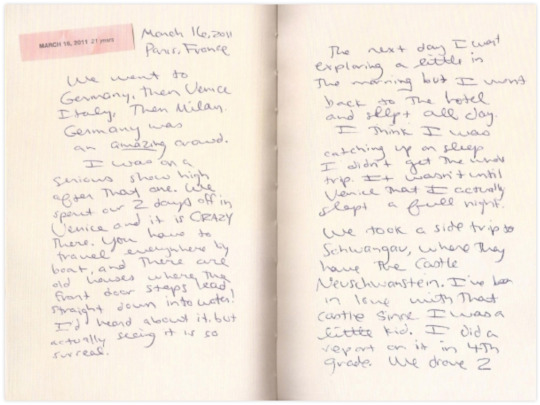 MARCH 16, 2011 21 years
March 16, 2011
Paris, France
We went to
Germany, then Venice
Italy, Then Milan.
Germany was
an amazing crowd.
I was on a
serious show high
after That one. We
spent our 2 days off in
Venice and it is CRAZY
There. You have to
travel everywhere by
boat, and There are
old houses where The
front door steps lead
straight down into water!
I'd heard about it, but
actually seeing it is so
surreal.
The next day I went
exploring a little in
The morning but I went
back to The hotel
and slept all day.
I Think I was
catching up on sleep
I didn't get The whole
trip. It wasn't until
Venice That I actually
slept a full night.
We took a side trip to
Schwangau, where They
have The Castle
Neuschwanstein. I've been
in love with That
castle since I was a
little kid. I did a
report on it in 4th
grade. We drove 2